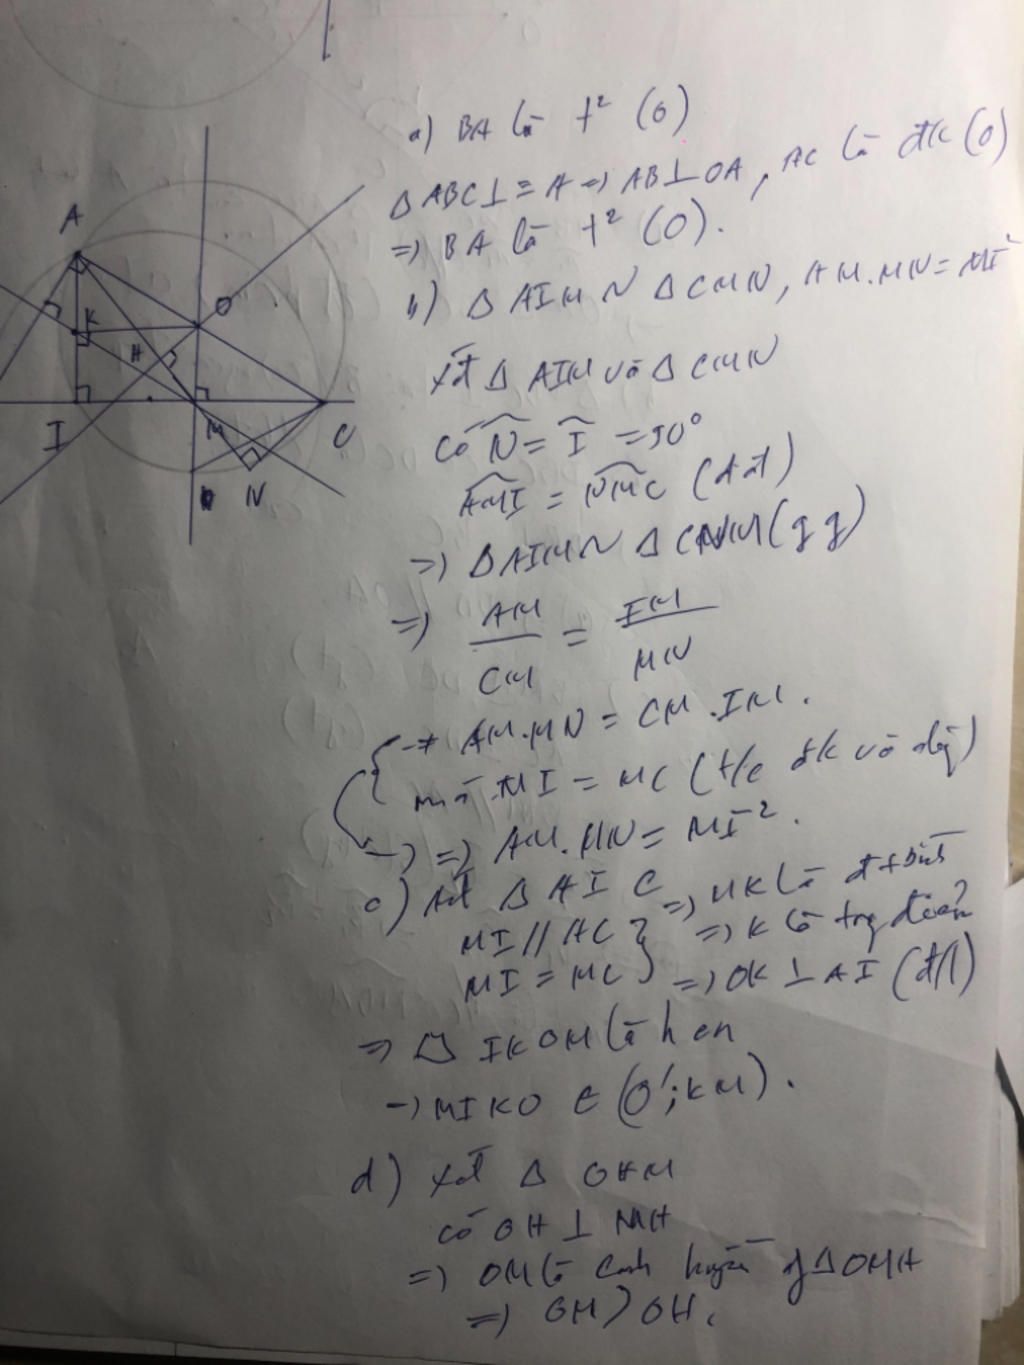 a) BA là t² (O)
Δ ABC ⊥ ≡ A => AB ⊥ OA, AC là đk (O)
=> BA là t² (O).
b) Δ AIM ~ Δ CMN, AM.MN = MI²
xét Δ AIM và Δ CMN
có N̂ = Î = 90°
AMI = NMC (đđ)
=> Δ AIM ~ Δ CNM (gg)
=> AM/CM = IM/MN
-* AM.MN = CM.IM.
mà MI = MC (t/c đk và dây)
-> => AM.MN = MI².
c) xét Δ AIC => MK là đtbình
MI // AC } => K là trg điểm
MI = MC => OK ⊥ AI (đl)
=> IKOM là hcn
-> MIKO ∈ (O'; KM).
d) xét Δ OHM
có OH ⊥ MH
=> OM là cạnh huyền Δ OMH
=> OM > OH.
A
O
K
H
I
M
C
N